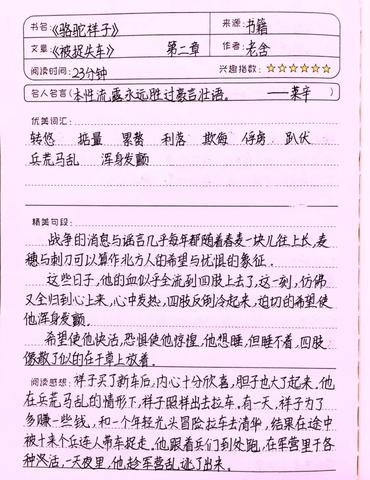 书名:《骆驼祥子》 来源:书籍
文章:《被捉失车》 第二章 作者:老舍
阅读时间:23分钟 兴趣指数:☆☆☆☆☆☆
名人名言(本性流露永远胜过豪言壮语。 ——莱辛 )
优美词汇:
转悠 掂量 累赘 利落 欺侮 俘虏 趴伏
兵荒马乱 浑身发颤
精美句段:
战争的消息与谣言几乎每年都随着春麦一块儿往上长,麦
穗与刺刀可以算作北方人的希望与忧惧的象征.
这些日子,他的血似乎全流到四肢上去了,这一刻,仿佛
又全归到心上来,心中发热,四肢反倒冷起来,迫切的希望使
他浑身发颤.
希望使他快活,恐惧使他惊惶,他想睡,但睡不着,四肢
像散了似的在干草上放着.
阅读感想:祥子买了新车后,内心十分欣喜,胆子也大了起来.他
在兵荒马乱的情形下,祥子照样出去拉车.有一天,祥子为了
多赚一些钱,和一个年轻光头冒险拉车去清华,结果在途中
被十来个兵连人带车捉走.他跟着兵们到处跑,在军营里干各
种冗活,一天夜里,他趁军营乱逃了出来.